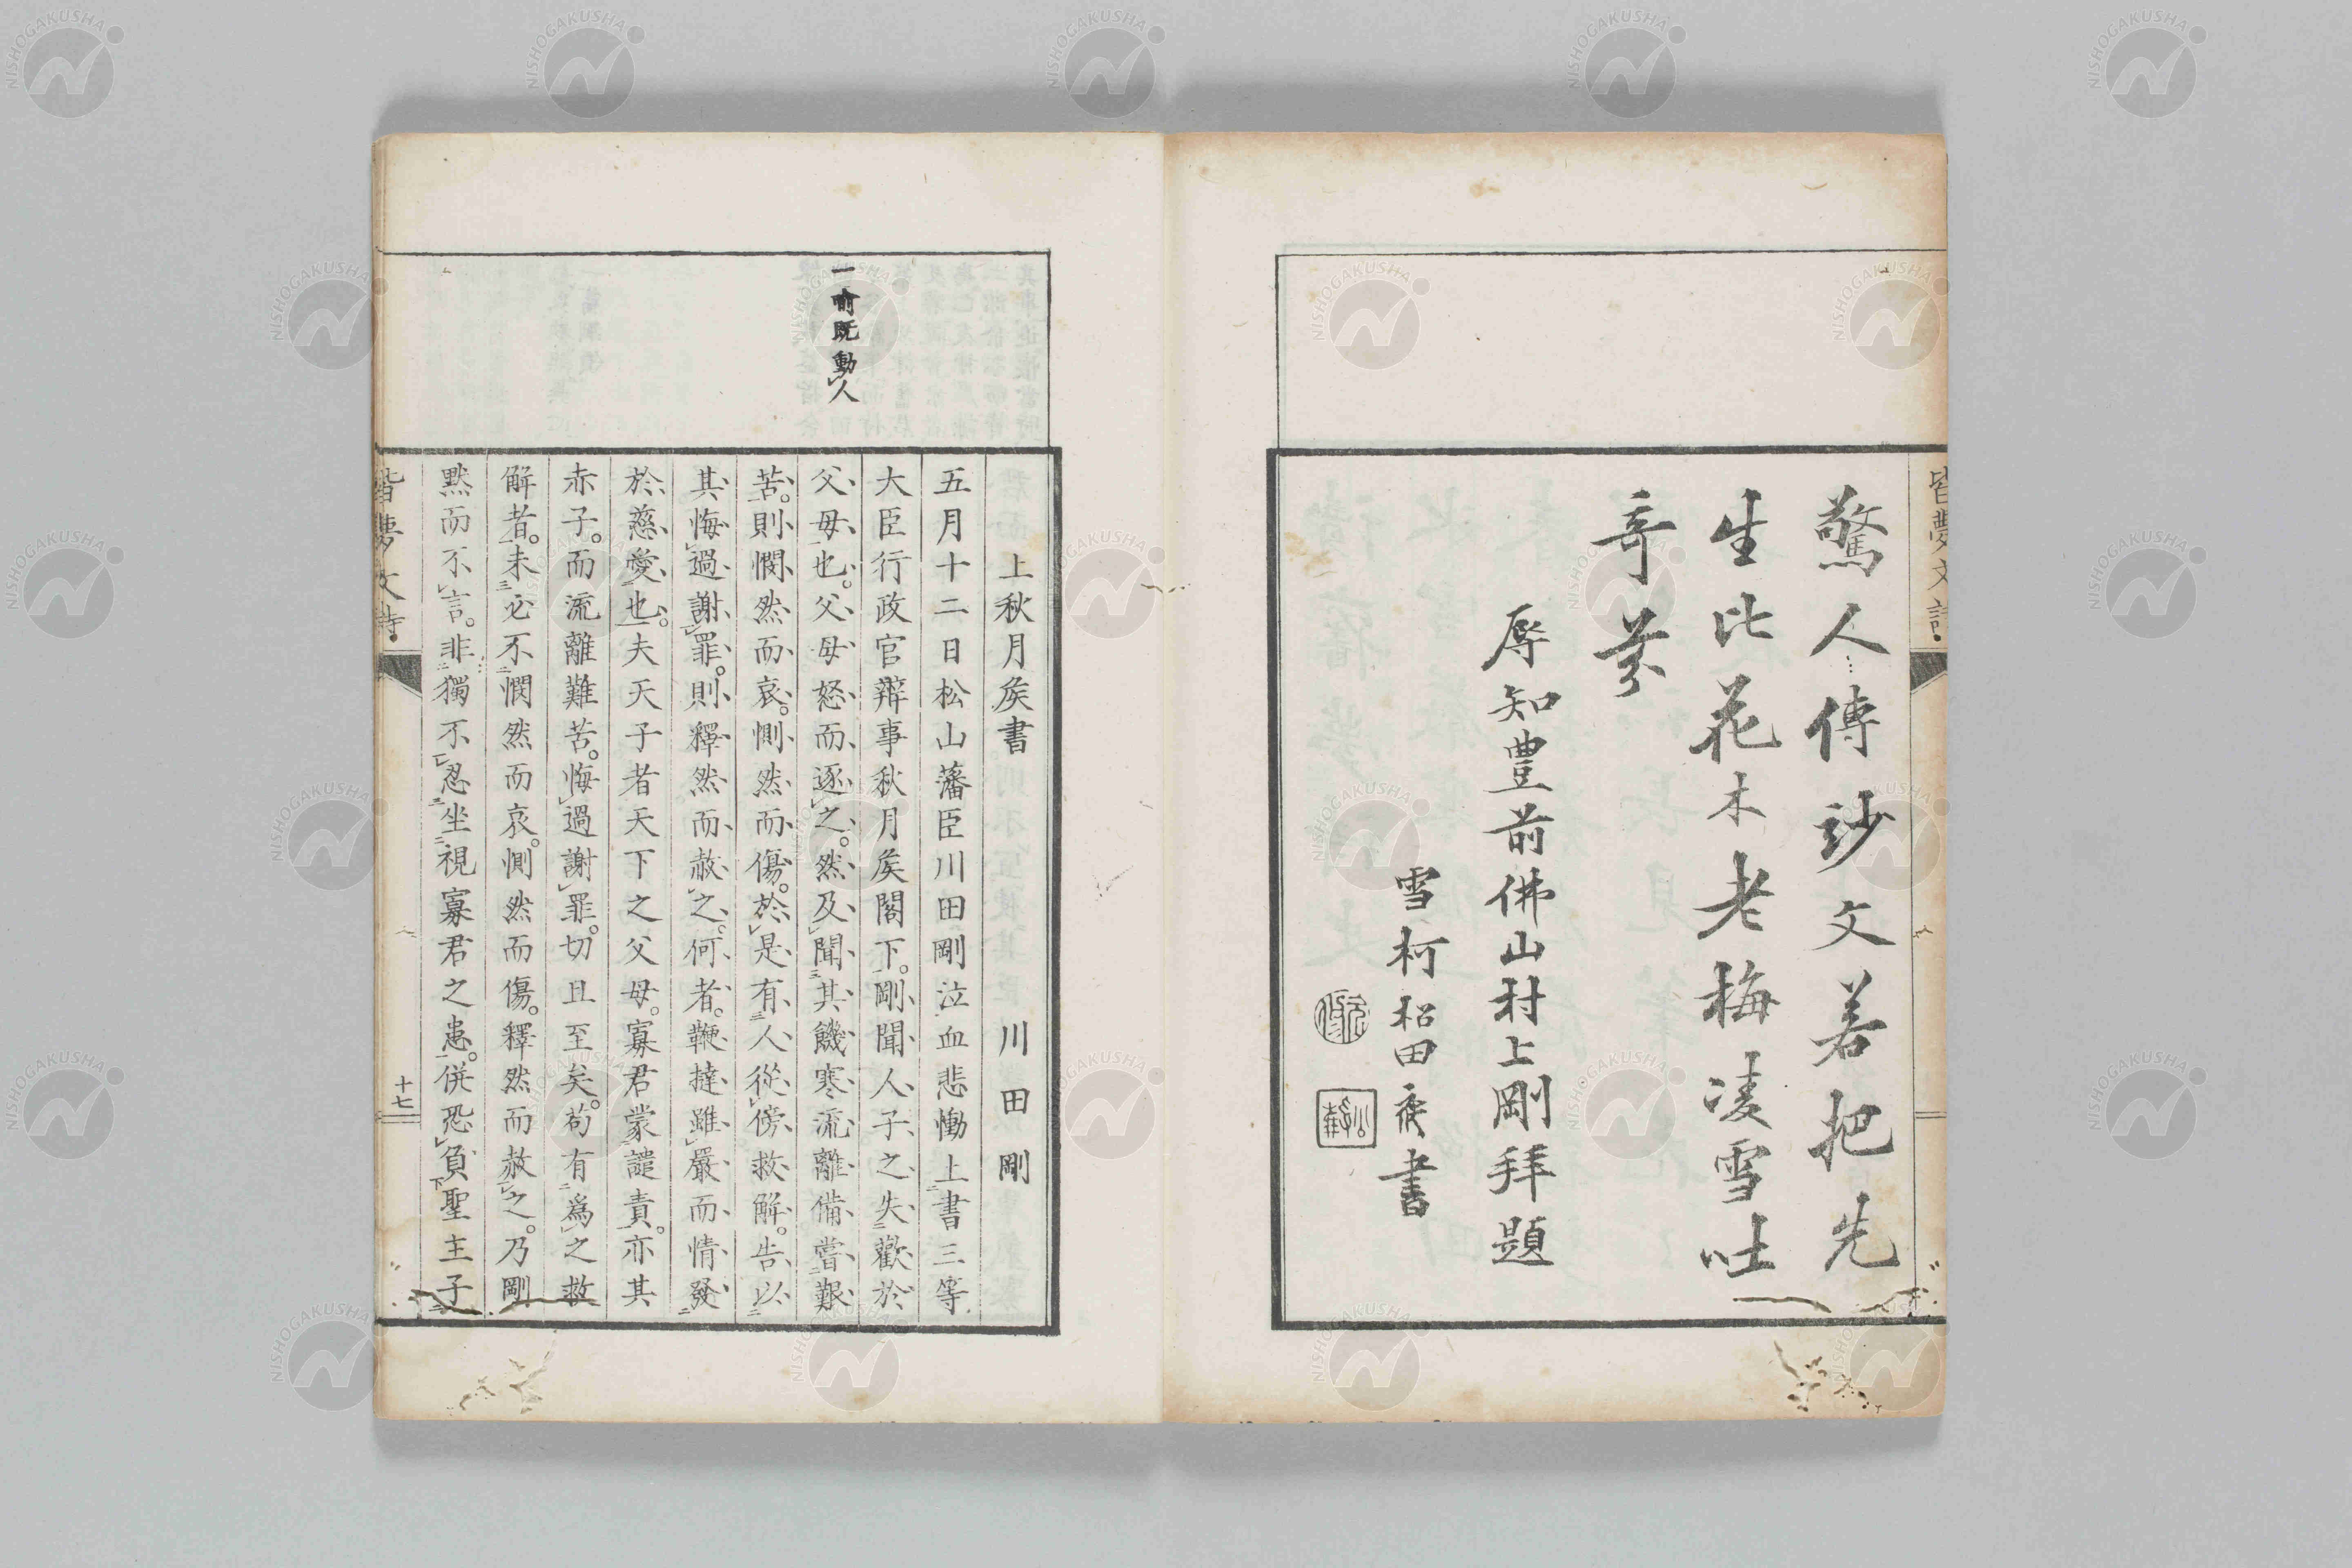 驚人傳沙文若把先
生比花木老梅凌雪吐
奇芬
辱知豊前佛山村上剛拜題
雪柯松田
書
皆夢文詩
一喻既動人
上秋月矦書
川田剛
五月十二日松山藩臣川田剛泣血悲慟上書三等
大臣行政官辨事秋月矦閣下。剛聞人子之失歡於
父母也。父母怒而逐之。然及聞其饑寒流離備嘗艱
苦。則憫然而哀。惻然而傷。於是有人從傍救解。告以
其悔過謝罪。則釋然而赦之。何者。鞭撻雖嚴而情發
於慈愛也。夫天子者天下之父母。寡君蒙譴責。亦其
赤子。而流離難苦。悔過謝罪。切且至矣。苟有爲之救
解者。未必不憫然而哀。惻然而傷。釋然而赦之。乃剛
默而不言。非獨不忍坐視寡君之患。併恐負聖主子
皆夢文詩
十七
NISHOGAKUSHA